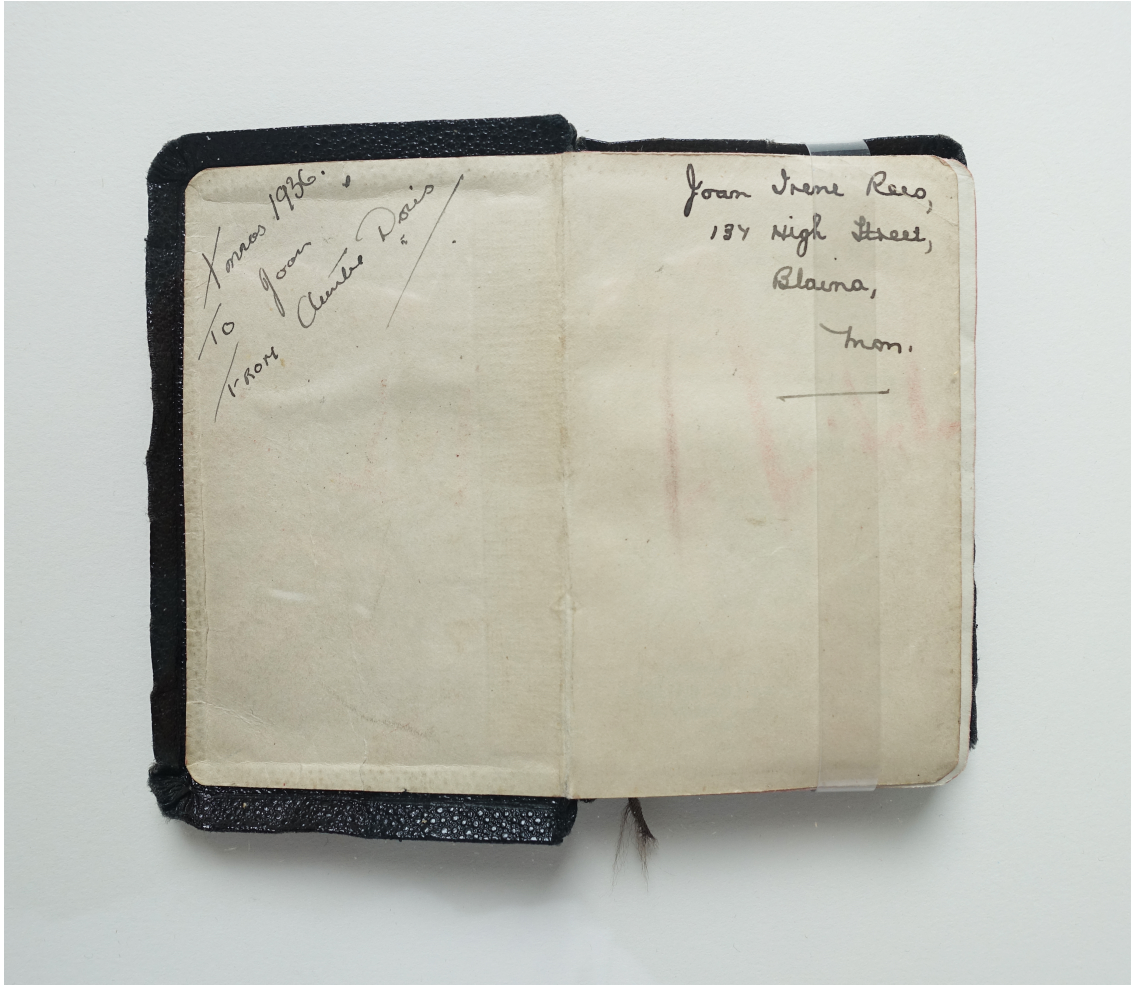 Xmas 1936.
To Joan
FROM Auntie Doris
Joan Irene Rees,
137 High Street,
Blaina,
Mon.